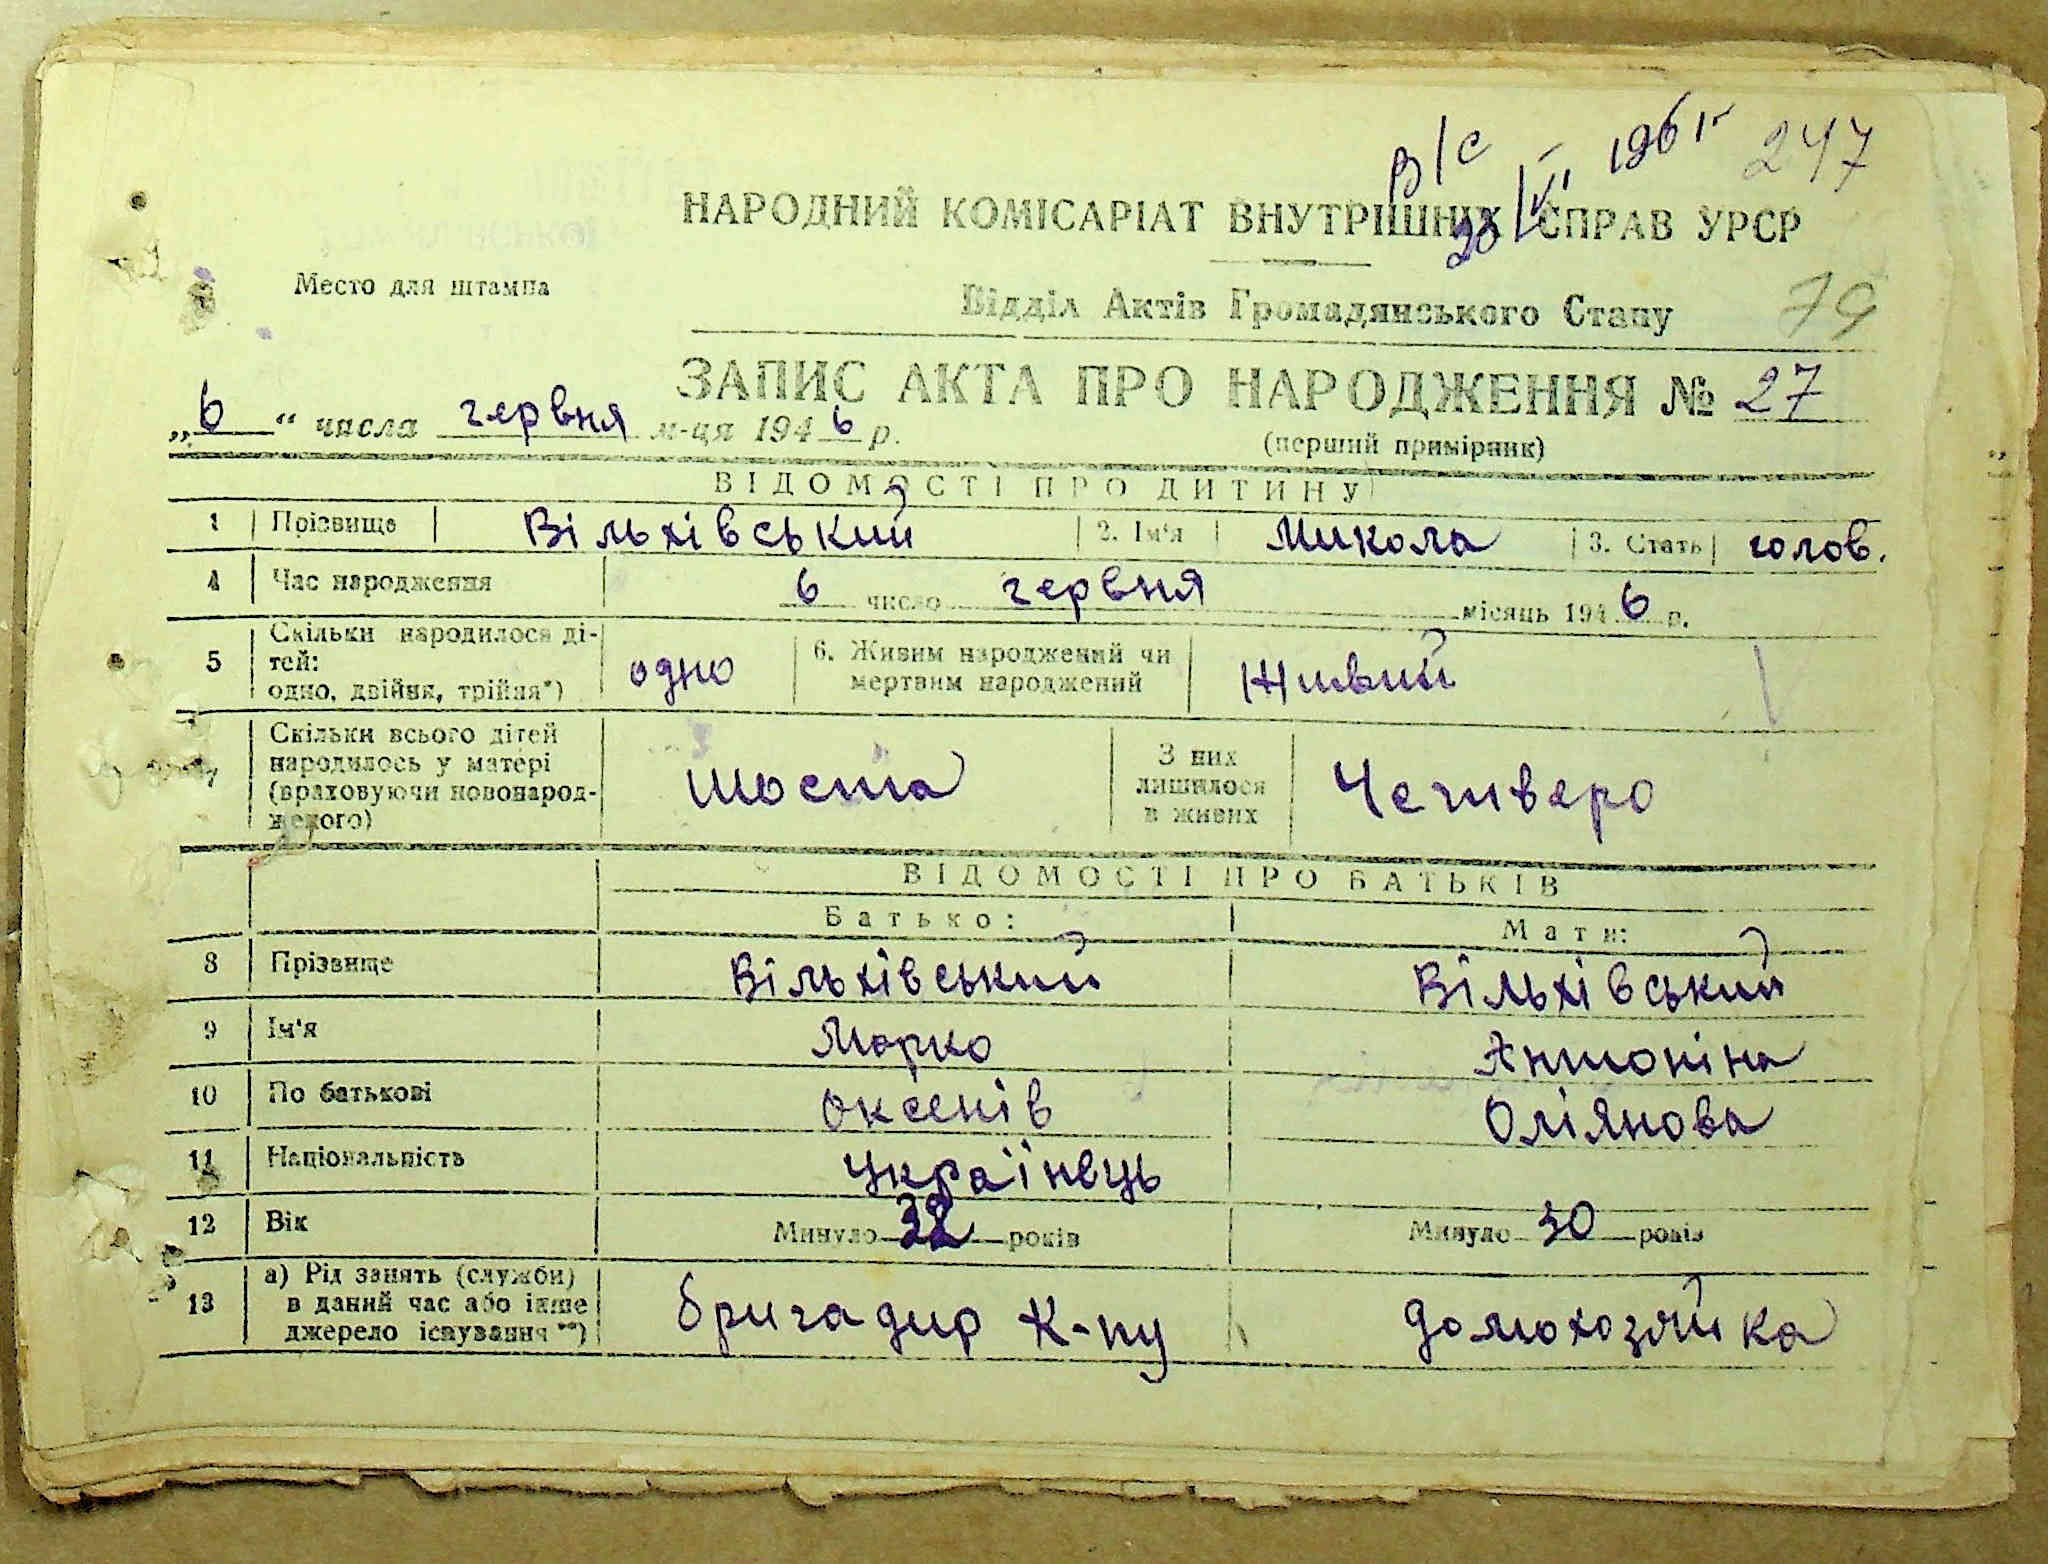 В/С 20/VI 1961г 247
НАРОДНИЙ КОМІСАРІАТ ВНУТРІШНІХ СПРАВ УРСР
Место для штампа
Відділ Актів Громадянського Стану 79
ЗАПИС АКТА ПРО НАРОДЖЕННЯ № 27
„6“ числа червня м-ця 1946 р.
(перший примірник)
ВІДОМОСТІ ПРО ДИТИНУ
1 Прізвище Вільхівський 2. Ім'я Микола 3. Стать голов.
4 Час народження 6 число червня місяць 1946 р.
5 Скільки народилося ді-
тей:
одно, двійня, трійня*) одно 6. Живим народжений чи
мертвим народжений Живий
7 Скільки всього дітей
народилось у матері
(враховуючи новонарод-
женого) шоста З них
лишилося
в живих Четверо
ВІДОМОСТІ ПРО БАТЬКІВ
Батько: Мати:
8 Прізвище Вільхівський Вільхівський
9 Ім'я Марко Антоніна
10 По батькові Оксенів Оліянова
11 Національність Українець
12 Вік Минуло 32 років Минуло 30 років
13 а) Рід занять (служби)
в даний час або інше
джерело існування**) бригадир К-пу домохозяйка